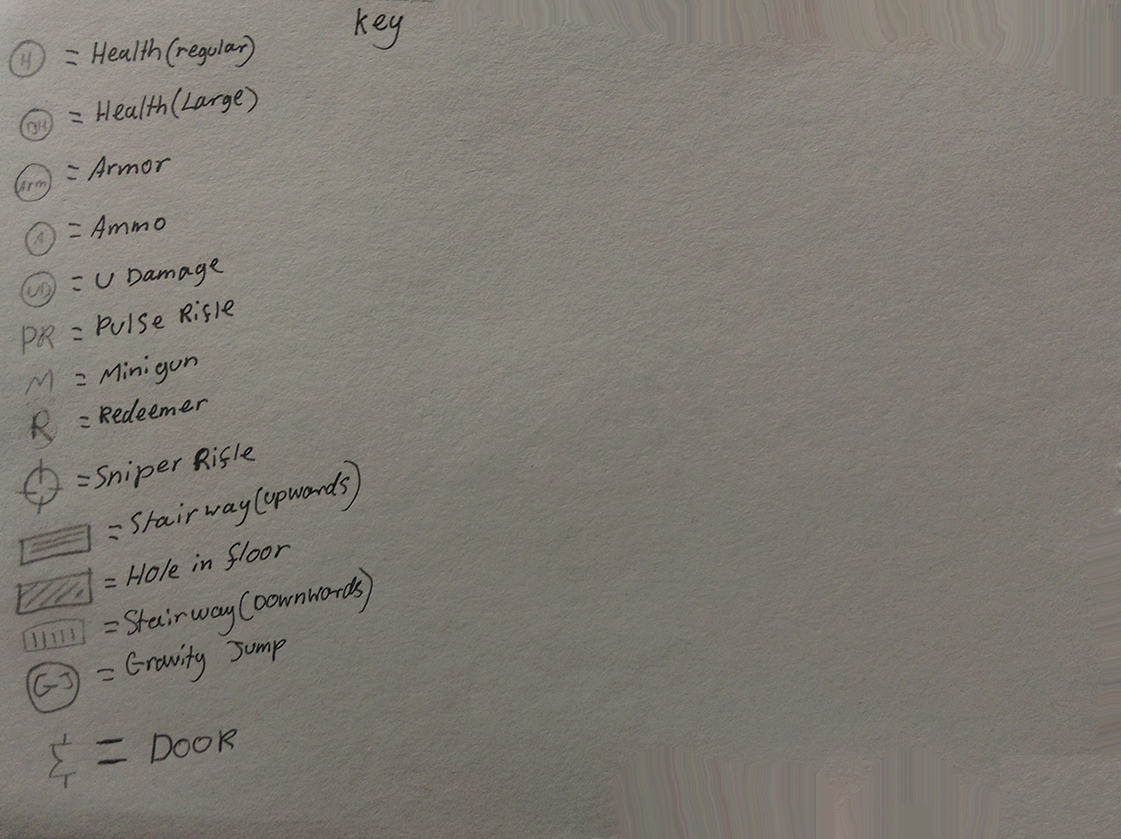 Key
H = Health(regular)
BH = Health(Large)
Arm = Armor
A = Ammo
UD = U Damage
PR = Pulse Rifle
M = Minigun
R = Redeemer
= Sniper Rifle
= Stairway(upwards)
= Hole in floor
= Stairway(Downwards)
GJ = Gravity Jump
= DOOR